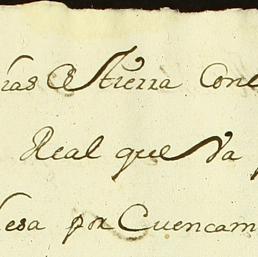 rias Estierra Con
Real que Va
esa por Cuencam